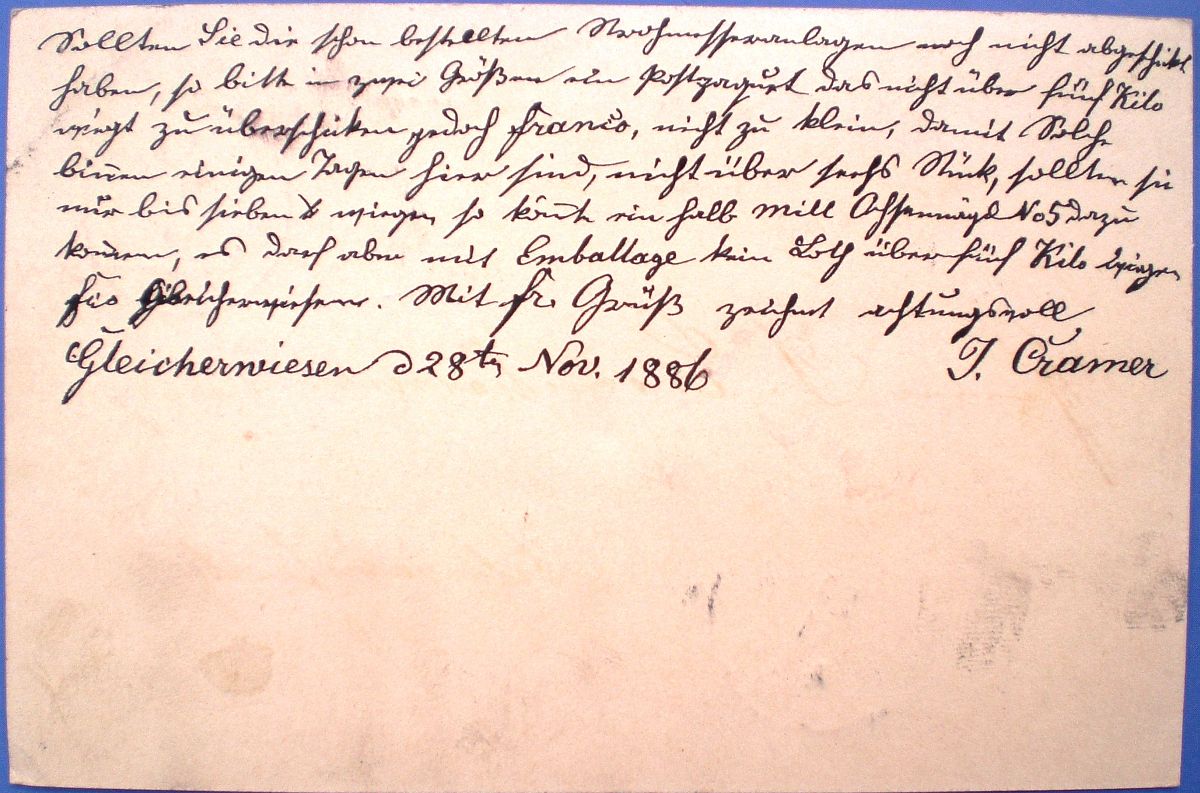 Sollten Sie die schon bestellten Strohmesseranlagen noch nicht abgeschickt
haben, so bitte in zwei Größen ein Postpaquet das nicht über fünf Kilo
wiegt zu überschicken jedoch franco, nicht zu klein, damit Solche
binnen einigen Tagen hier sind, nicht über sechs Stück, sollten sie
nur bis sieben wiegen so könnte ein halb Mill Ochsennägel No 5 dazu
kommen, es darf aber mit Emballage kein Loth über fünf Kilo wiegen
fco Gleicherwiesen. Mit fr. Gruß zeichnet achtungsvoll
Gleicherwiesen d 28tn Nov. 1886 J. Cramer